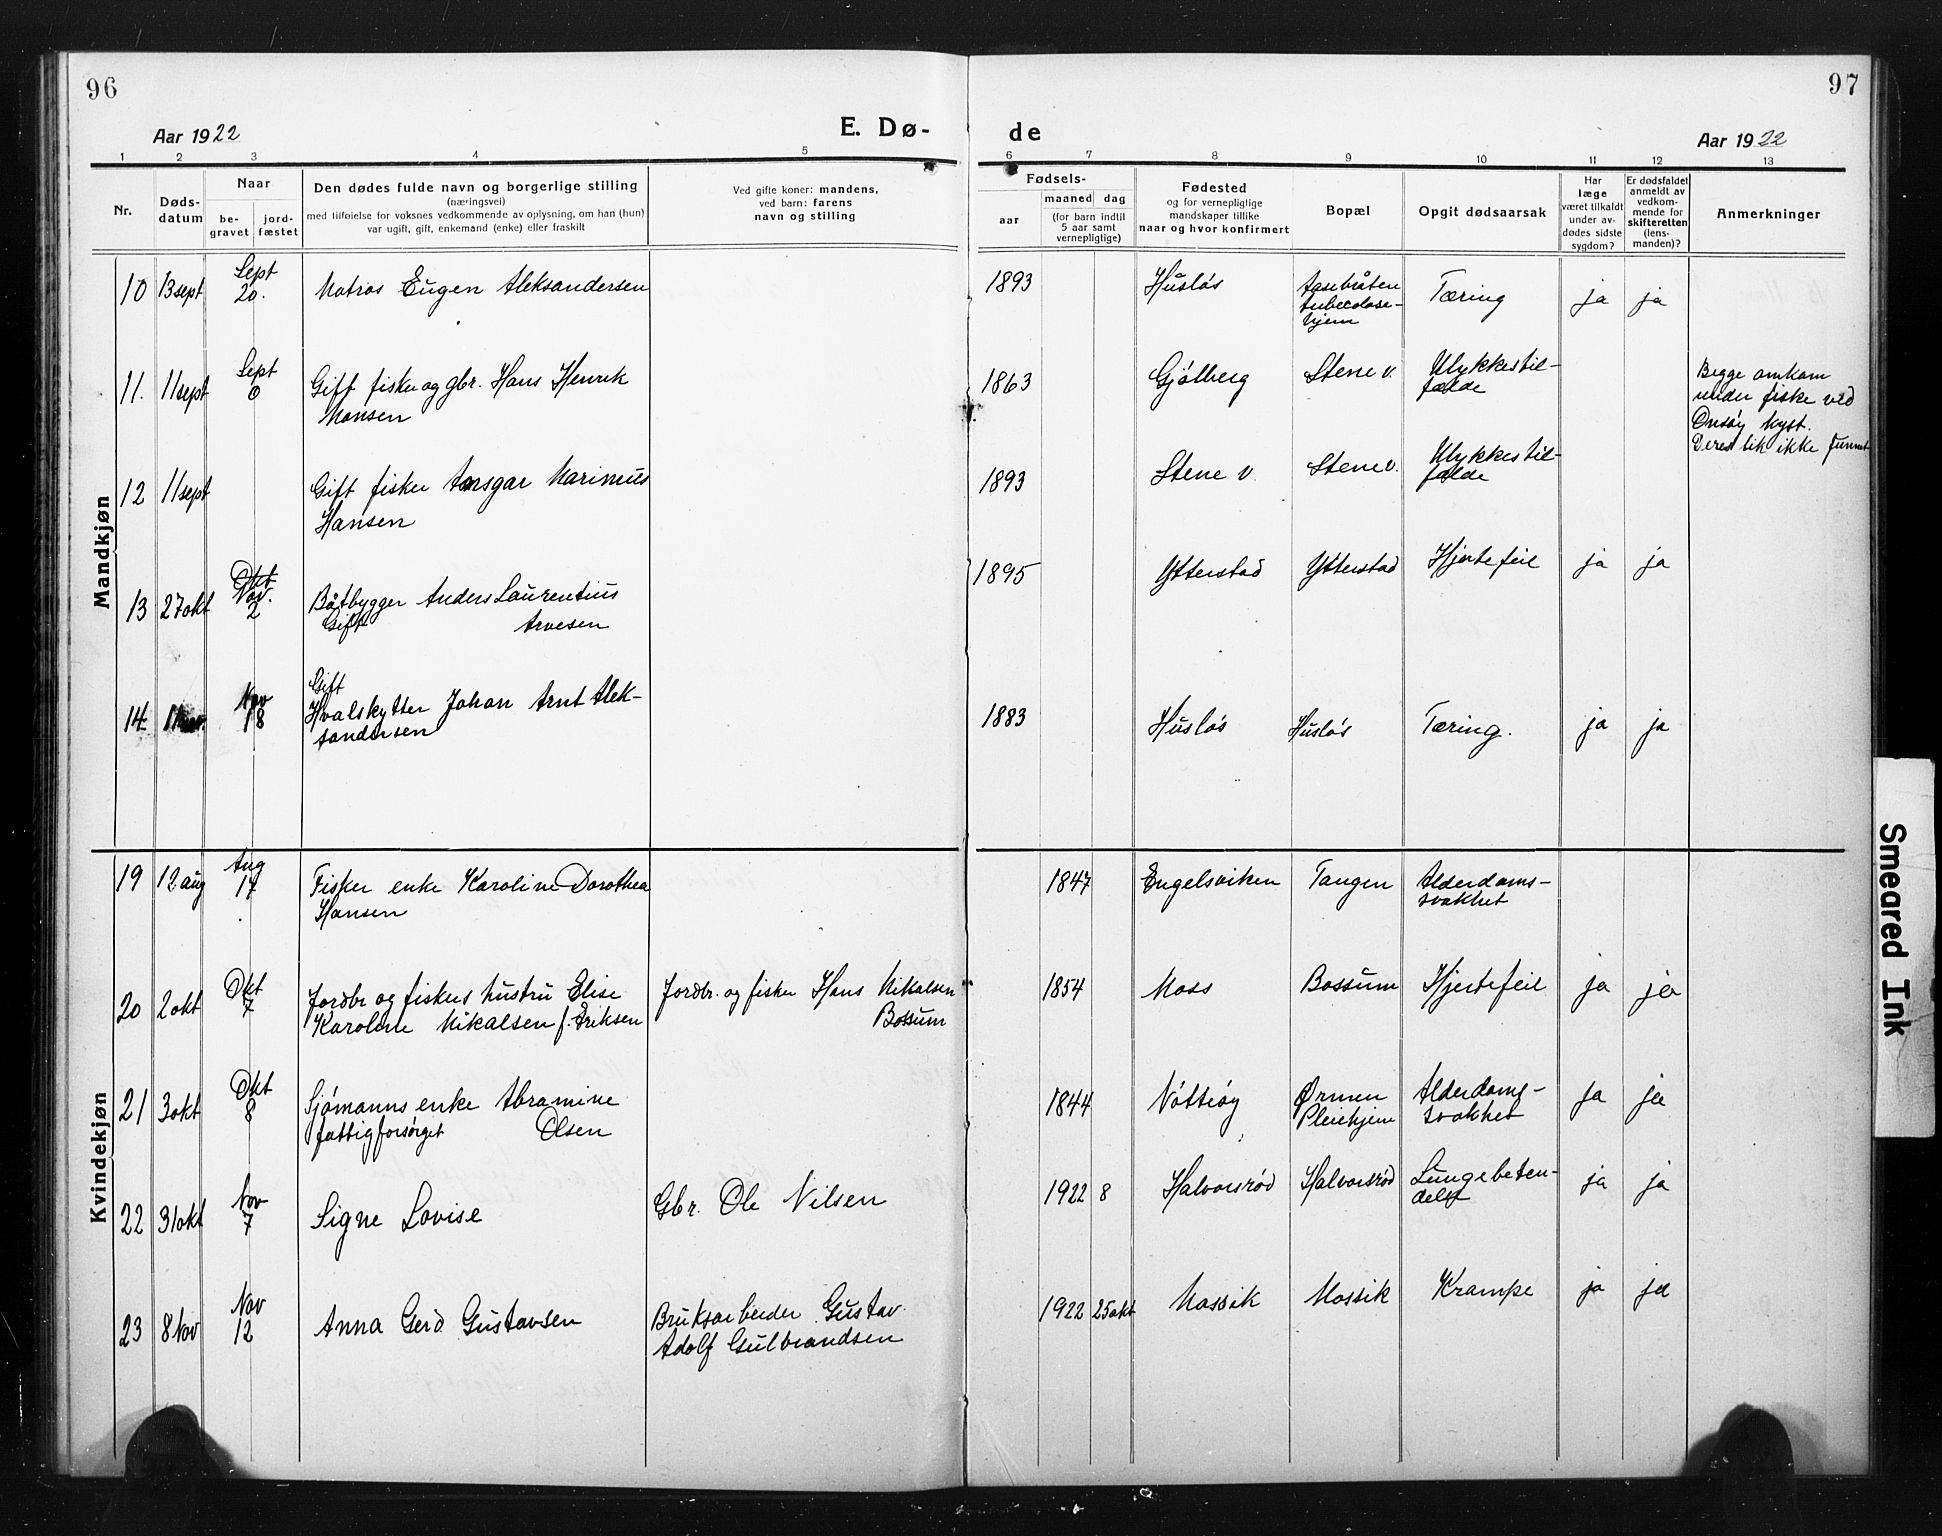 96
97
Aar 1922
E. Dø-
de
Aar 1922
1 2 3 4 5 6 7 8 9 10 11 12 13
Nr.
Døds-
datum
Naar
be-
gravet
jord-
fæstet
Den dødes fulde navn og borgerlige stilling
(næringsvei)
med tilføielse for voksnes vedkommende av oplysning, om han (hun)
var ugift, gift, enkemand (enke) eller fraskilt
Ved gifte koner: mandens,
ved barn: farens
navn og stilling
Fødsels-
aar
maaned dag
(for barn indtil
5 aar samt
vernepligtige)
Fødested
og for vernepligtige
mandskaper tillike
naar og hvor konfirmert
Bopæl
Opgit dødsaarsak
Har
læge
været tilkaldt
under av-
dødes sidste
sygdom?
Er dødsfaldet
anmeldt av
vedkom-
mende for
skifteretten
(lens-
manden)?
Anmerkninger
Mandkjøn
10 13 sept
Sept
20.
Matros Eugen Aleksandersen
1893
Husløs
Aasebråten
tuberculose-
hjem
Tæring
ja ja
11. 11 sept
Sept
Gift fisker og gbr. Hans Henrik
Hansen
1863
Gjølberg
Stene v.
Ulykkestil-
fælde
Begge omkom
under fiske ved
Onsøy kyst.
Deres lik ikke funnet
12 11 sept
Gift fisker Ansgar Marinius
Hansen
1893
Stene v
Stene v.
Ulykkestil-
fælde
13 27 okt
Okt
Nov.
2
Båtbygger Anders Laurentius
Gift Arvesen
1895
Ytterstad
Ytterstad
Hjertefeil
ja ja
14
Nov
18
Gift
Hvalskytter Johan Arnt Alek-
sandersen
1883
Husløs
Husløs
Tæring.
ja ja
Kvindekjøn
19 12 aug
Aug
17
Fisker enke Karoline Dorothea
Hansen
1847
Engelsviken
Tangen
Alderdoms-
svakhet
20 2 okt
Okt
7
Jordbr og fiskers hustru Elise
Karoline Nikalsen f. Eriksen
Jordbr. og fisker Hans Nikalsen
Bossum
1854
Moss
Bossum
Hjertefeil
ja ja
21 3 okt
Okt
8
Sjømanns enke Abramine
fattigforsørget Olsen
1844
Nøtterøy
Ørmen
Pleiehjem
Alderdoms-
svakhet
ja ja
22 31 okt
Nov
7
Signe Lovise
Gbr. Ole Nilsen
1922 8
Halvorsrød
Halvorsrød
Lungebeten-
delse
ja ja
23 8 Nov
Nov
12
Anna Gerd Gustavsen
Bruksarbeider Gustav
Adolf Gulbrandsen
1922 25 okt
Mossik
Mossik
Krampe
ja ja
Smeared Ink